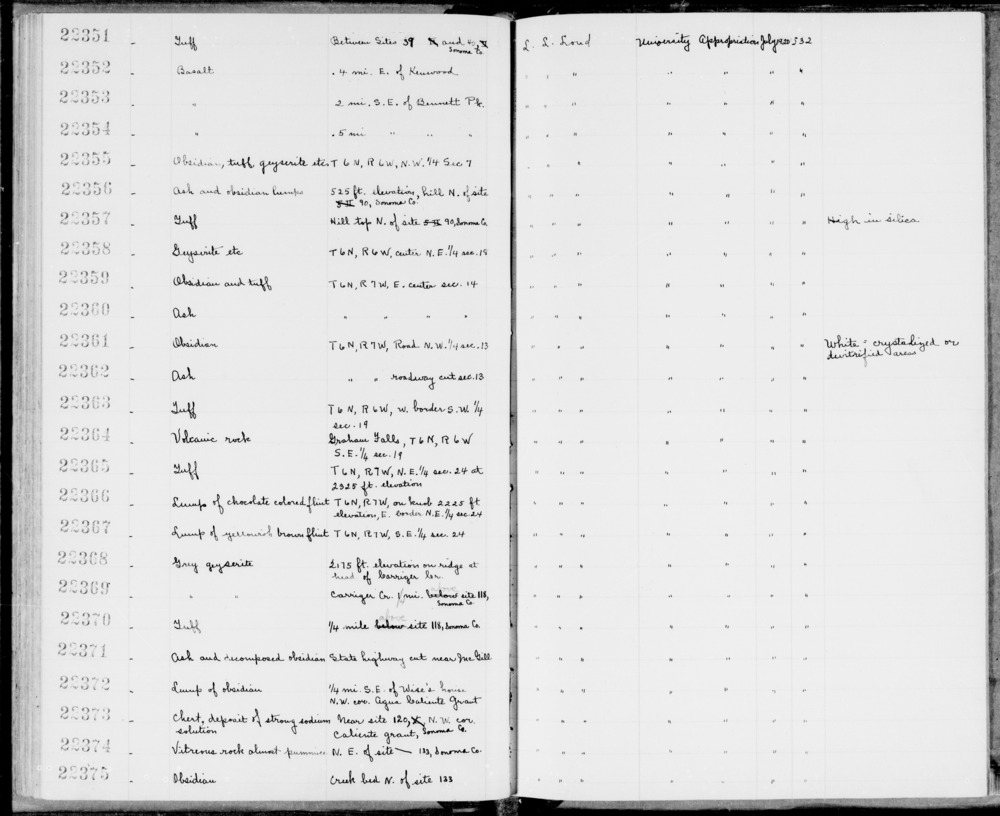 22351 - Tuff Between Sites 39 and Sonoma Co. L. L. Loud University Appropriation July 1920 532
22352 - Basalt .4 mi. E. of Kenwood " " " " " " "
22353 - " 2 mi. S.E. of Bennett Pk. " " " " " " "
22354 - " .5 mi " " " " " " " " " "
22355 - Obsidian, tuff, geyserite etc. T 6 N, R 6 W, N.W. 1/4 Sec 7 " " " " " " "
22356 - Ash and obsidian lumps 525 ft. elevation, hill N. of site " " " " " " "
90, Sonoma Co.
22357 - Tuff Hill top N. of site 90, Sonoma Co. " " " " " " " High in silica
22358 - Geyserite etc T 6 N, R 6 W, center N.E. 1/4 sec. 18 " " " " " " "
22359 - Obsidian and tuff T 6 N, R 7 W, E. center sec. 14 " " " " " " "
22360 - Ash " " " " " " " " " " "
22361 - Obsidian T 6 N, R 7 W, Road N.W. 1/4 sec. 13 " " " " " " " White = crystalized or
devitrified areas
22362 - Ash " " roadway cut sec. 13 " " " " " " "
22363 - Tuff T 6 N, R 6 W, W. border S.W. 1/4 " " " " " " "
sec. 19
22364 - Volcanic rock Graham Falls, T 6 N, R 6 W " " " " " " "
S.E. 1/4 sec. 19
22365 - Tuff T 6 N, R 7 W, N.E. 1/4 sec. 24 at " " " " " " "
2325 ft. elevation
22366 - Lumps of chocolate colored flint T 6 N, R 7 W, on knob 2225 ft " " " " " " "
elevation, E. border N.E. 1/4 sec 24
22367 - Lump of yellowish brown flint T 6 N, R 7 W, S.E. 1/4 sec. 24 " " " " " " "
22368 - Grey geyserite 2175 ft. elevation on ridge at " " " " " " "
head of Carriger Cr.
22369 - " " Carriger Cr. mi. below site 118, " " " " " " "
Sonoma Co.
22370 - Tuff 1/4 mile above below site 118, Sonoma Co. " " " " " " "
22371 - Ash and decomposed obsidian State highway cut near McGill " " " " " " "
22372 - Lump of obsidian 1/4 mi. S.E. of Wise's house " " " " " " "
N.W. cor. Agua Caliente Grant
22373 - Chert, deposit of strong sodium Near site 120, N.W. cor. " " " " " " "
solution Caliente grant, Sonoma Co.
22374 - Vitreous rock almost pummice N. E. of site — 133, Sonoma Co. " " " " " " "
22375 - Obsidian Creek bed N. of site 133 " " " " " " "